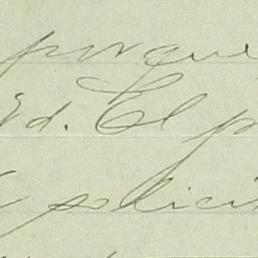 porque
Ud. El p
solicit